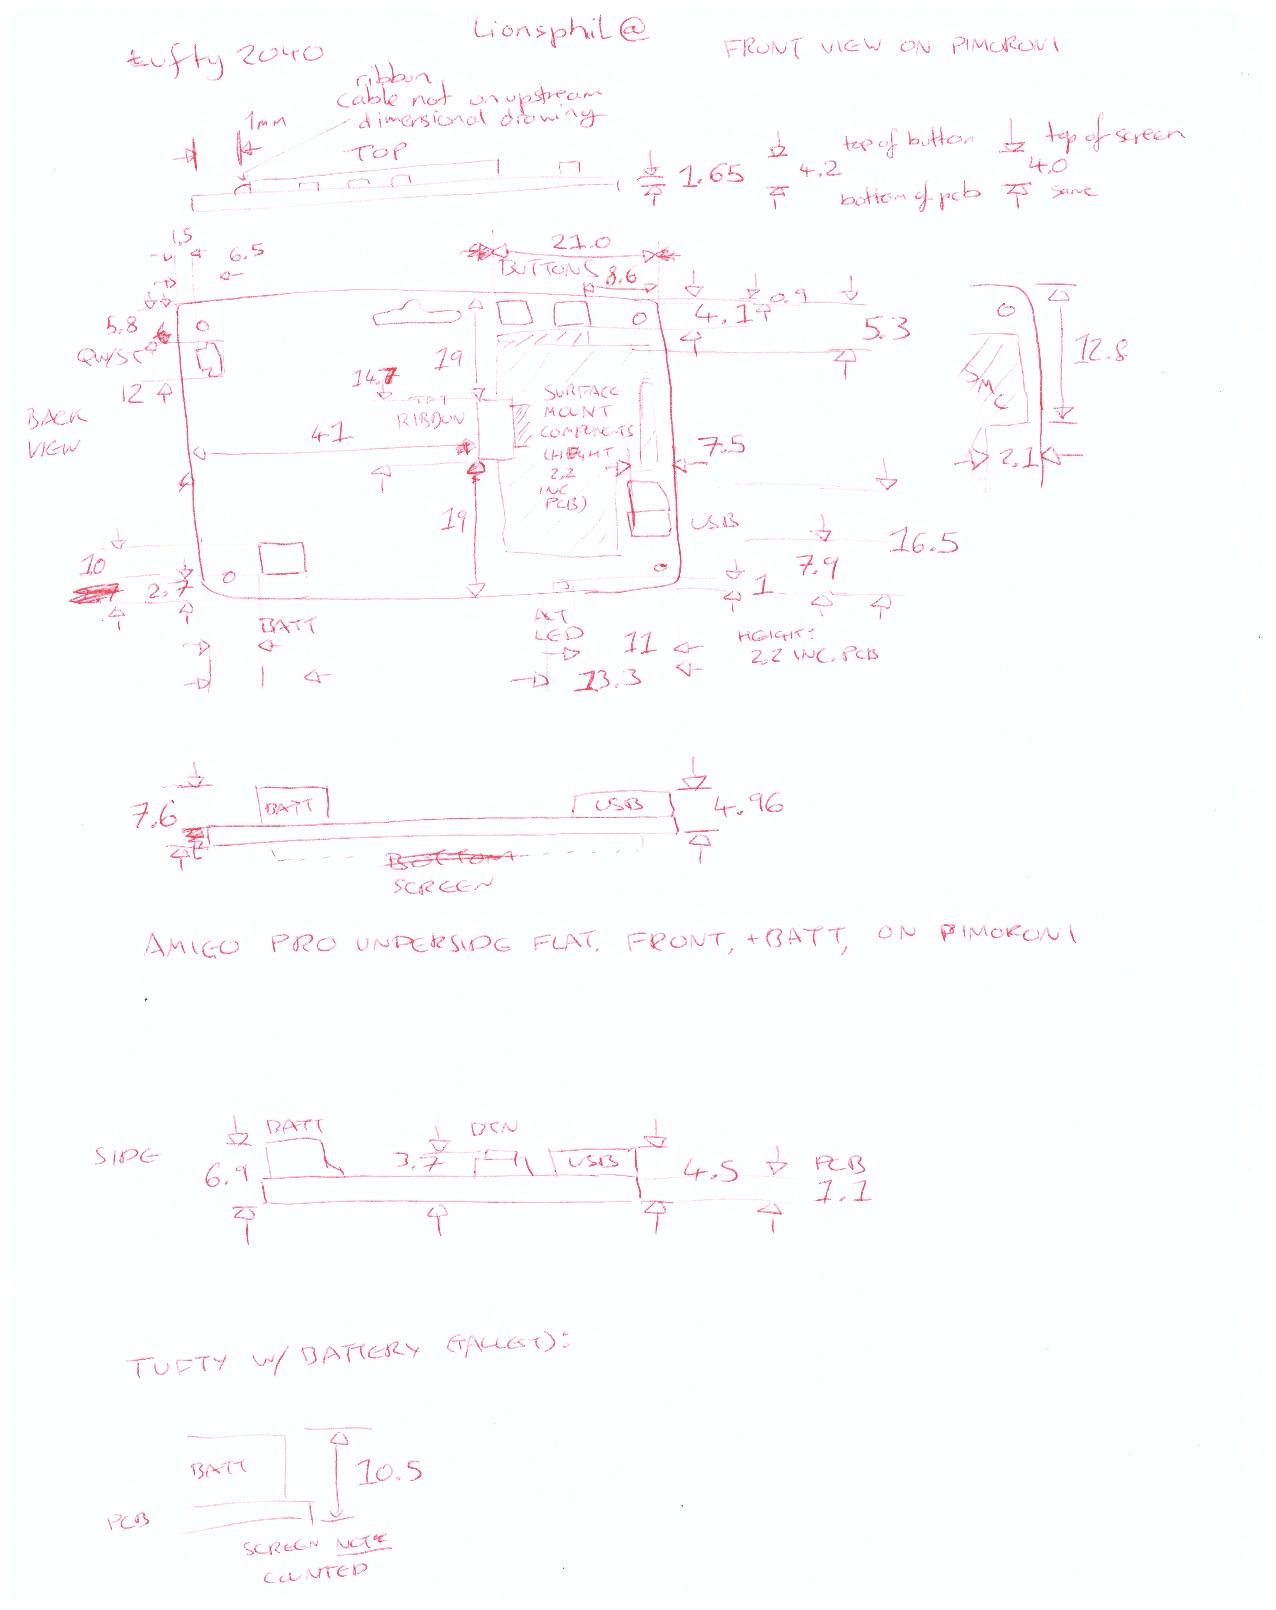 Lionsphil@
tufty 2040
FRONT VIEW ON PIMORONI
ribbon
cable not on upstream
dimensional drawing
1mm
TOP
1.65
4.2
top of button
bottom of pcb
top of screen
4.0
same
1.5
6.5
21.0
BUTTONS
8.6
0.9
4.1
5.3
5.8
QW/ST
12
BACK
VIEW
19
14.7
TFT
RIBBON
41
SURFACE
MOUNT
COMPONENTS
(HEIGHT
2.2
INC
PCB)
7.5
SMC
12.8
2.1
19
USB
16.5
7.9
10
2.7
1
BATT
ACT
LED
11
13.3
HEIGHT:
2.2 INC. PCB
7.6
BATT
USB
4.96
SCREEN
AMIGO PRO UNDERSIDE FLAT, FRONT, +BATT, ON PIMORONI
SIDE
BATT
BTN
6.9
3.7
USB
4.5
PCB
1.1
TUFTY W/ BATTERY (TALLEST):
BATT
10.5
PCB
SCREEN NOT
COUNTED